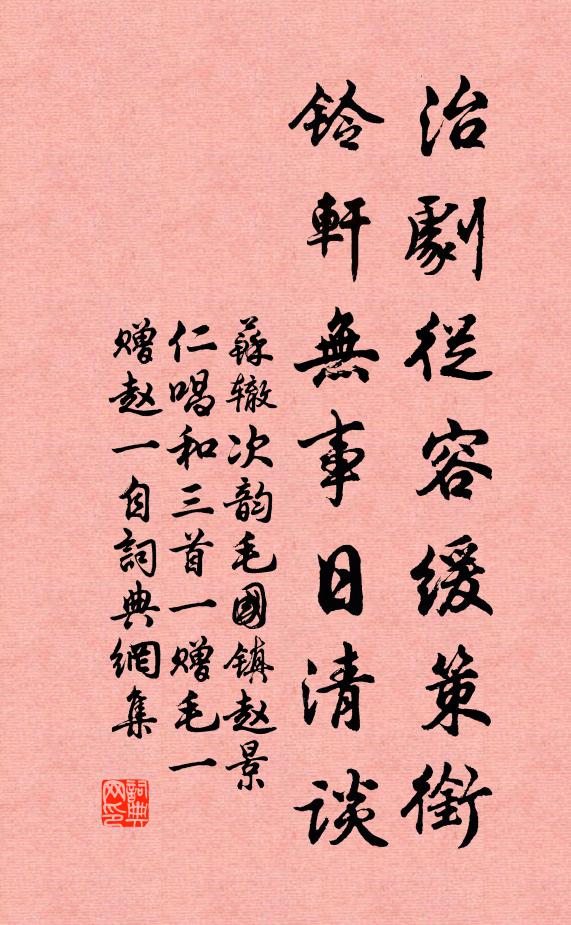 治劇從容緩策銜
鈴軒無事日清談
蘇辙次韵毛國镇赵景
仁唱和三首一赠毛一
赠赵一自詞典網集
詞典
网印